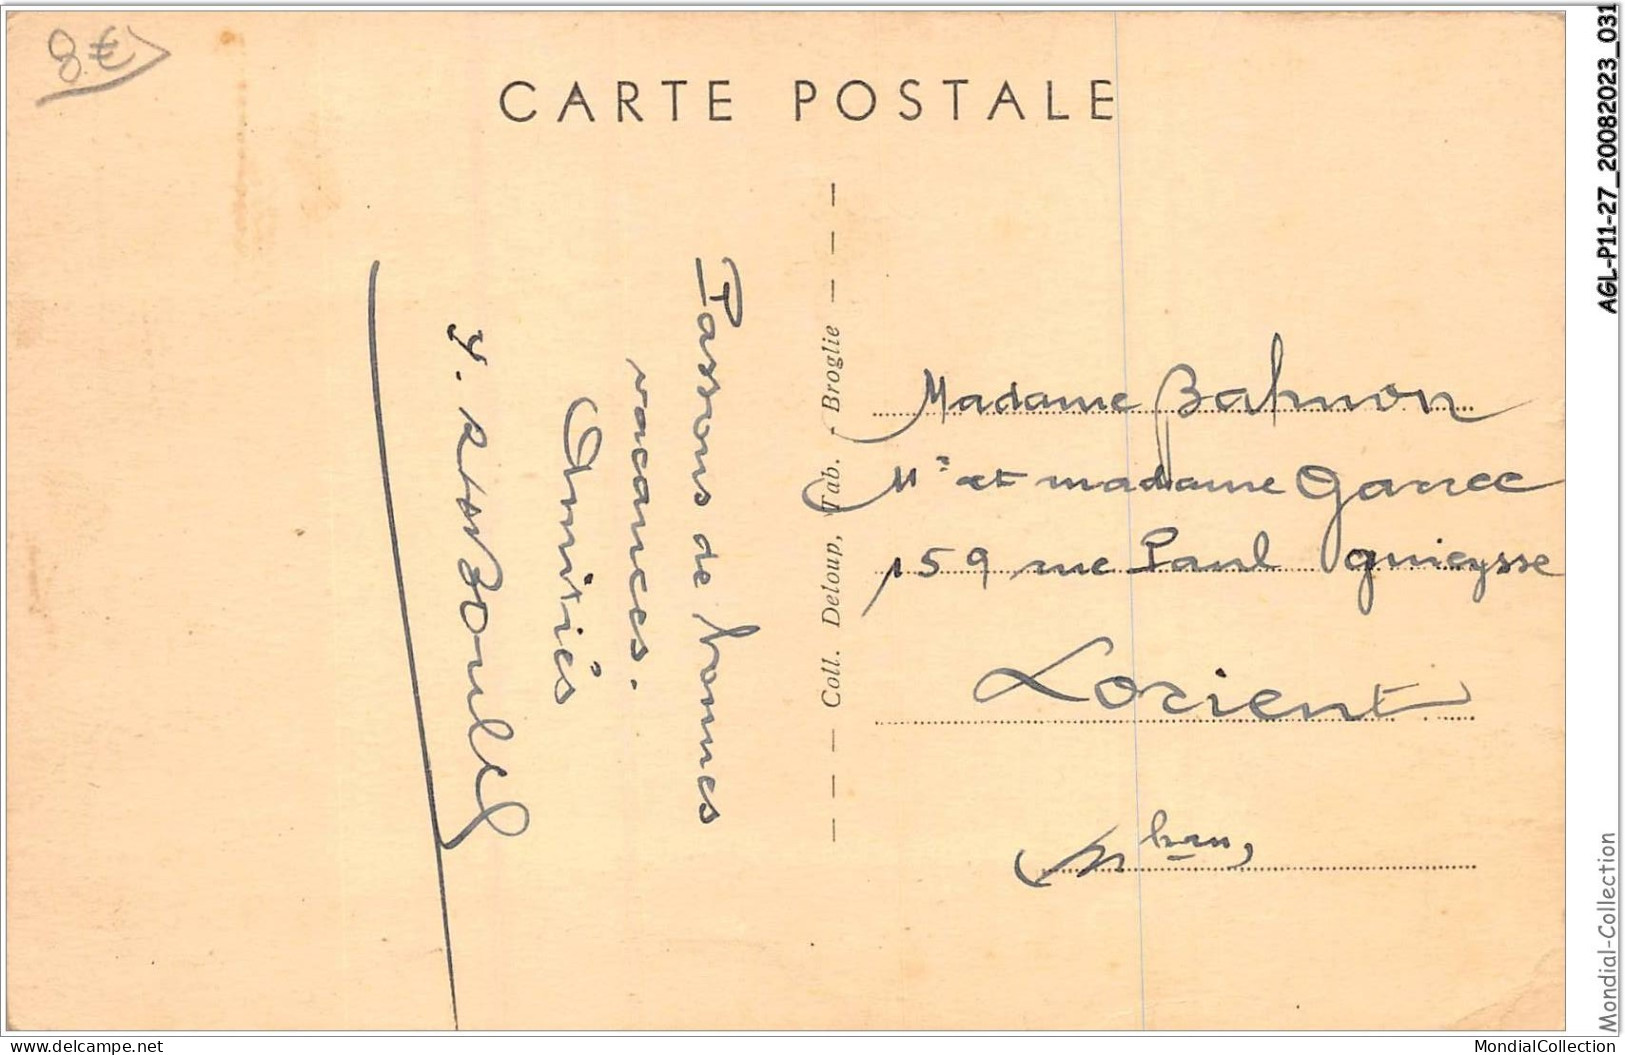 8€
CARTE POSTALE
Passons de bonnes
vacances.
Amitiés
Coll. Deloup, Tab. - Broglie
Madame
Mr et madame Garrec
159 rue Paul Guieysse
Lorient
Mbran,
AGL-P11-27_200822023_031
Mondial-Collection
www.delcampe.net
MondialCollection